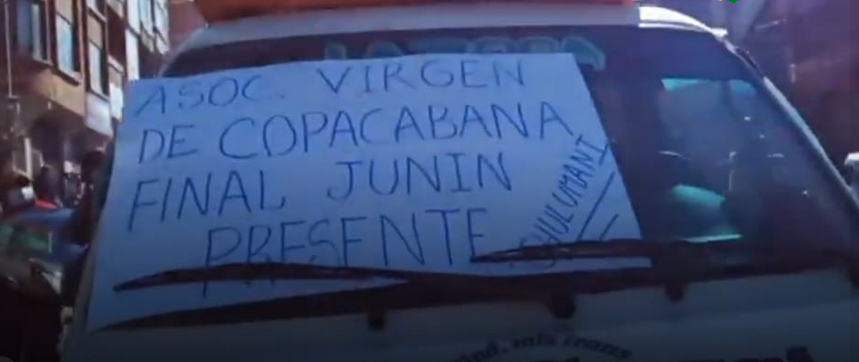 ASOC. VIRGEN
DE COPACABANA
FINAL JUNIN
PRESENTE
CHULUMANI